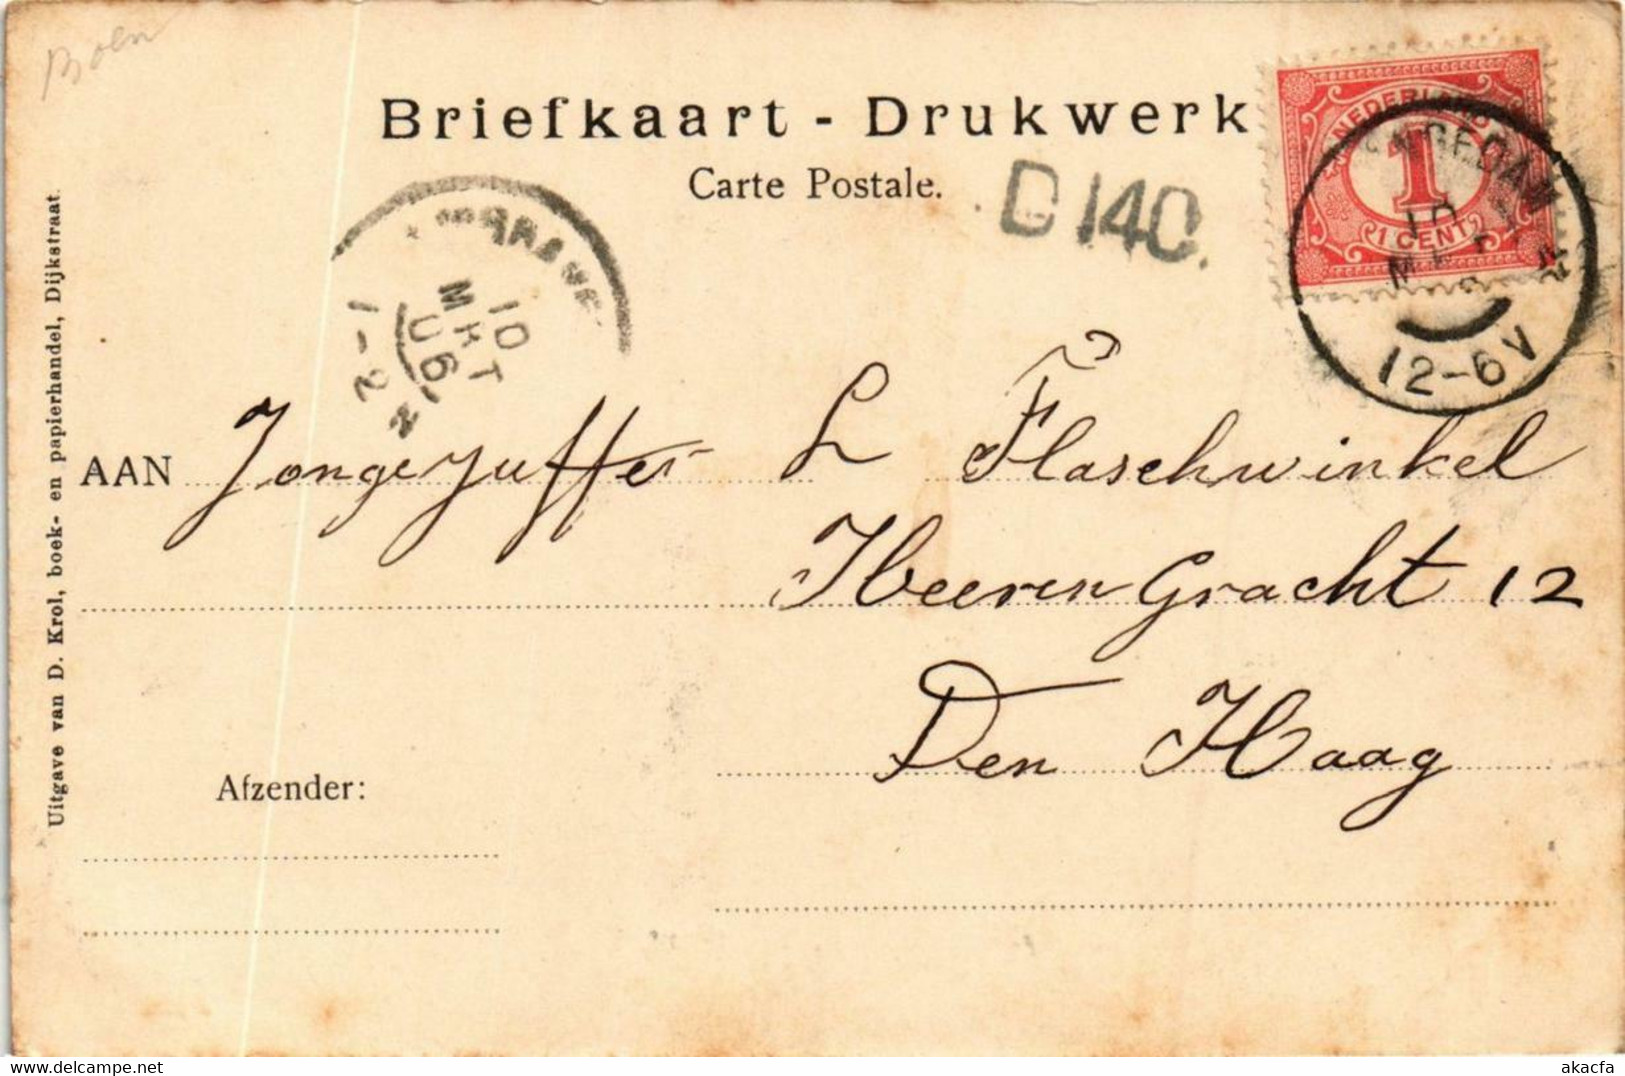 Briefkaart - Drukwerk
Carte Postale.
NEDERLAND
1
1 CENT
10
12-6V
D 140.
10
MRT
06
1-2 N
AAN Jongejuffer L Flaschwinkel
HeerenGracht 12
Den Haag
Afzender:
Uitgave van D. Krol, boek- en papierhandel, Dijkstraat
akacfa